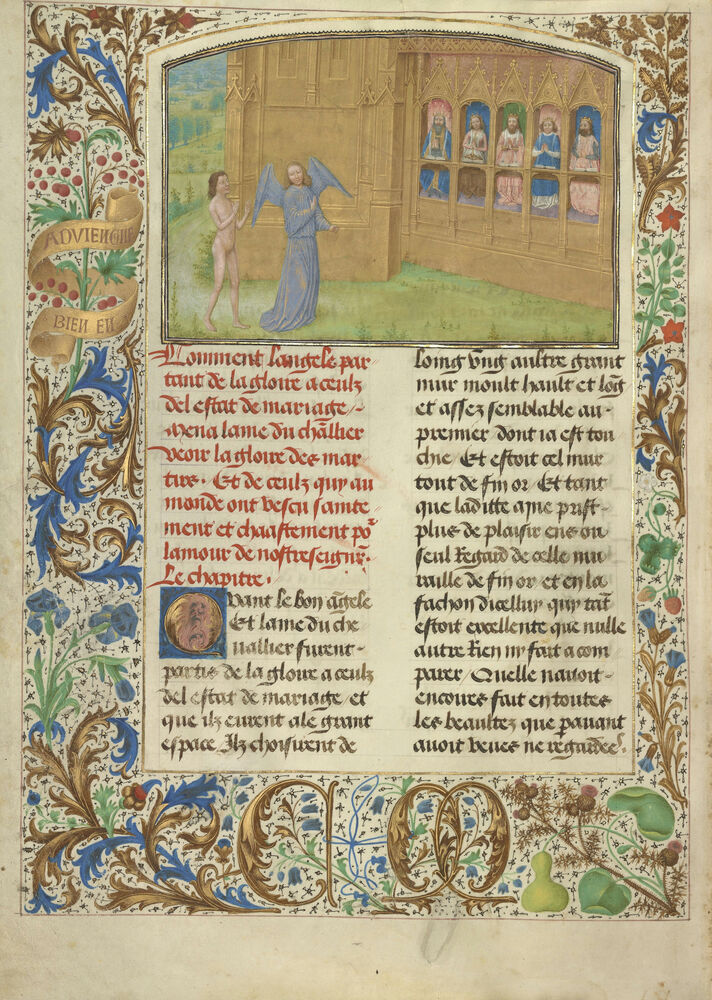 ADVIENGNE
BIEN EN
Comment langele par-
tant de la gloire a ceulz
del estat de mariage /.
Mena lame du chlȓier
veoir la gloire des mar
tirs . Et de ceulz quy au
monde ont vescu sainte
ment et chaastement po͛
lamour de nostre seign͛r.
Le chapitre .
Quant le bon ãgele
Et lame du che
uallier furent-
partis de la gloire a ceulz
del estat de mariage / et
que ilz eurent ale grant
espace Ilz choisirent de
loing vng aultre grant
mur moult hault et lõg
et assez semblable au-
premier dont ia est tou
chie Et estoit cel mur
tout de fin or Et tant
que laditte ame prist-
plus de plaisir ens ou
seul Regard de celle mu
raille de fin or et en la
fachon dicelluy quy tãt
estoit excellente que nulle
autre Rien ny fait a com
parer / Quelle nauoit-
encoures fait en toutes
les beaultez que p̃auant
auoit veues ne regardees.
C M